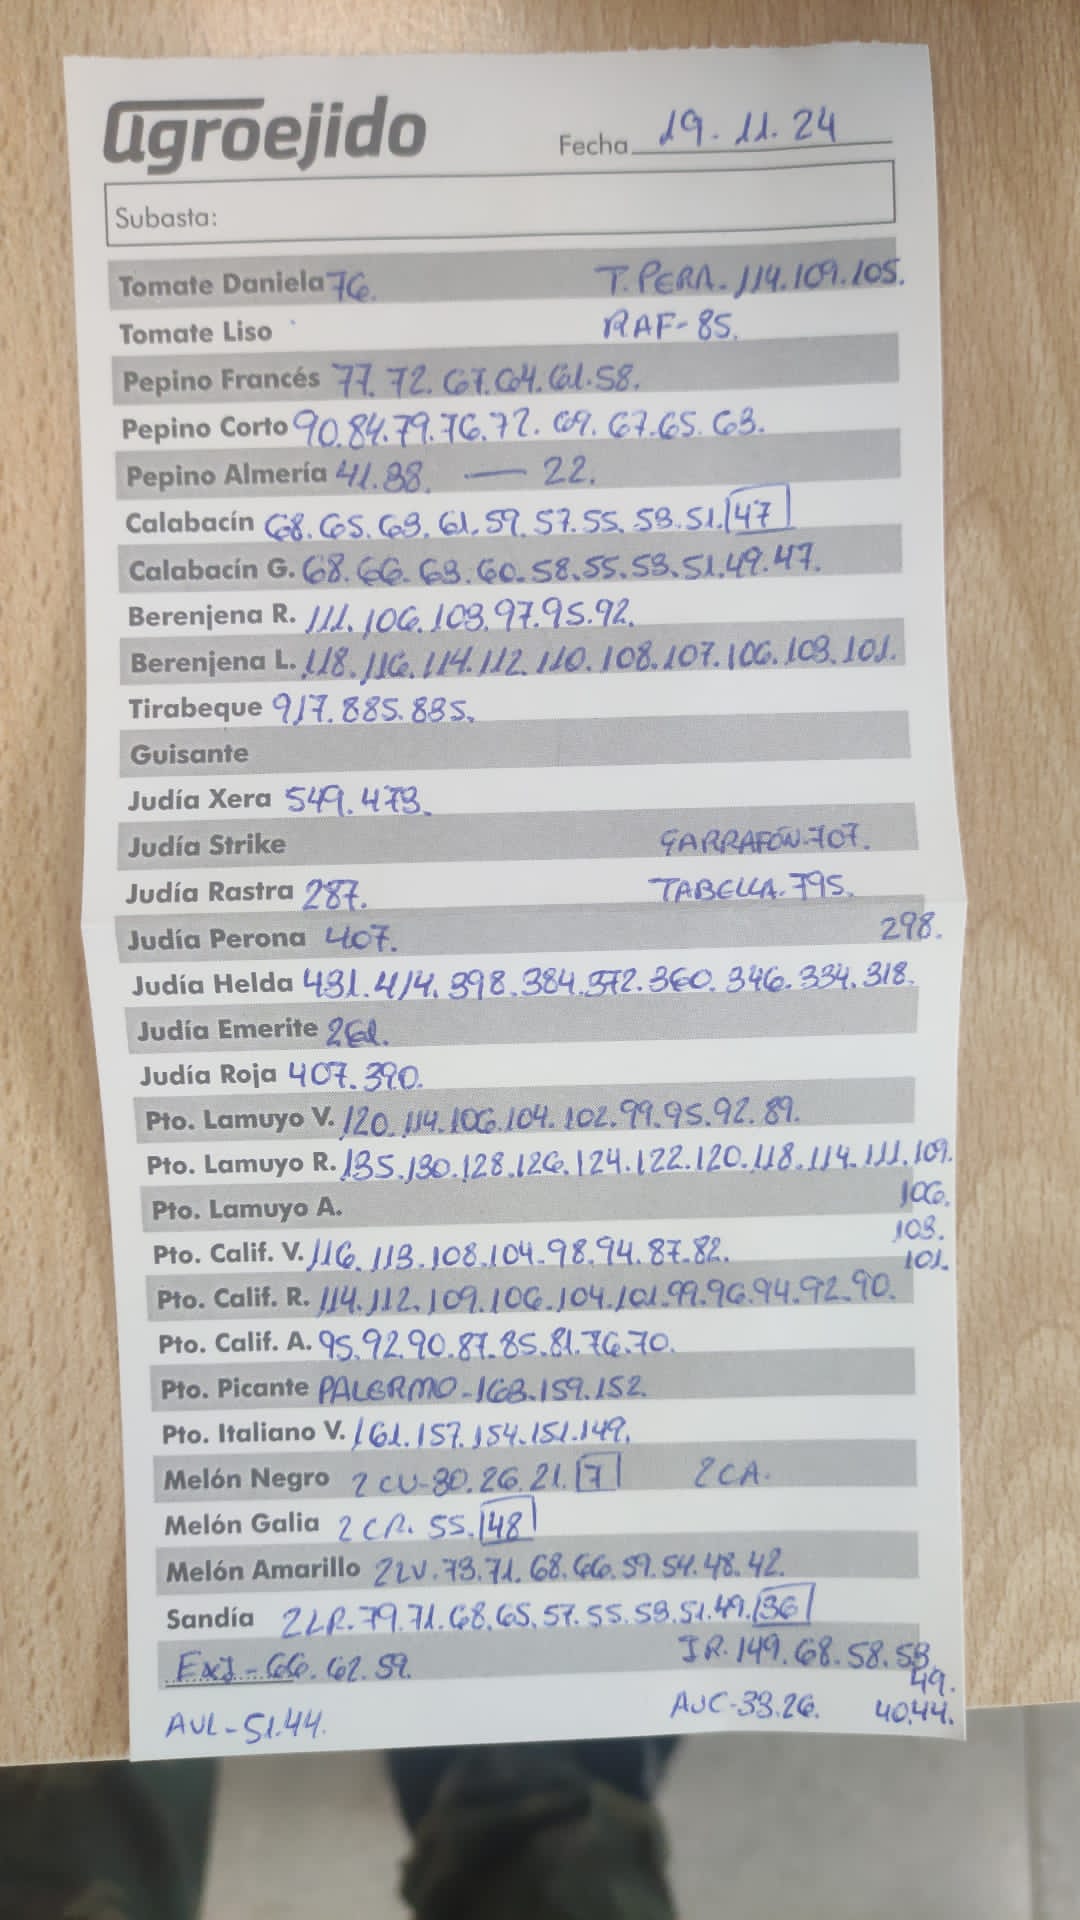 agroejido Fecha 19.11.24
Subasta:
Tomate Daniela 76. T. PERA. 114.109.105.
Tomate Liso RAF-85.
Pepino Francés 77.72.67.64.61.58.
Pepino Corto 90.84.79.76.72.69.67.65.63.
Pepino Almería 41.38. — 22.
Calabacín 68.65.63.61.59.57.55.53.51.47
Calabacín G. 68.66.63.60.58.55.53.51.49.47.
Berenjena R. 111.106.103.97.95.92.
Berenjena L. 118.116.114.112.110.108.107.106.103.101.
Tirabeque 917.885.835.
Guisante
Judía Xera 549.473.
Judía Strike GARRAFÓN.707.
Judía Rastra 287. TABELLA.795.
Judía Perona 407. 298.
Judía Helda 431.414.398.384.372.360.346.334.318.
Judía Emerite 261.
Judía Roja 407.390.
Pto. Lamuyo V. 120.114.106.104.102.99.95.92.89.
Pto. Lamuyo R. 135.130.128.126.124.122.120.118.114.111.109.
Pto. Lamuyo A. 106.
103.
Pto. Calif. V. 116.113.108.104.98.94.87.82. 101.
Pto. Calif. R. 114.112.109.106.104.101.99.96.94.92.90.
Pto. Calif. A. 95.92.90.87.85.81.76.70.
Pto. Picante PALERMO-163.159.152.
Pto. Italiano V. 161.157.154.151.149.
Melón Negro 2 CU-30.26.21.7 2CA.
Melón Galia 2 CR. 55.48
Melón Amarillo 2LV.73.71.68.66.59.54.48.42.
Sandía 2LR.79.71.68.65.57.55.53.51.49.36
ExJ-66.62.59. IR.149.68.58.53
49.
AUL-51.44. AUC-33.26. 40.44.